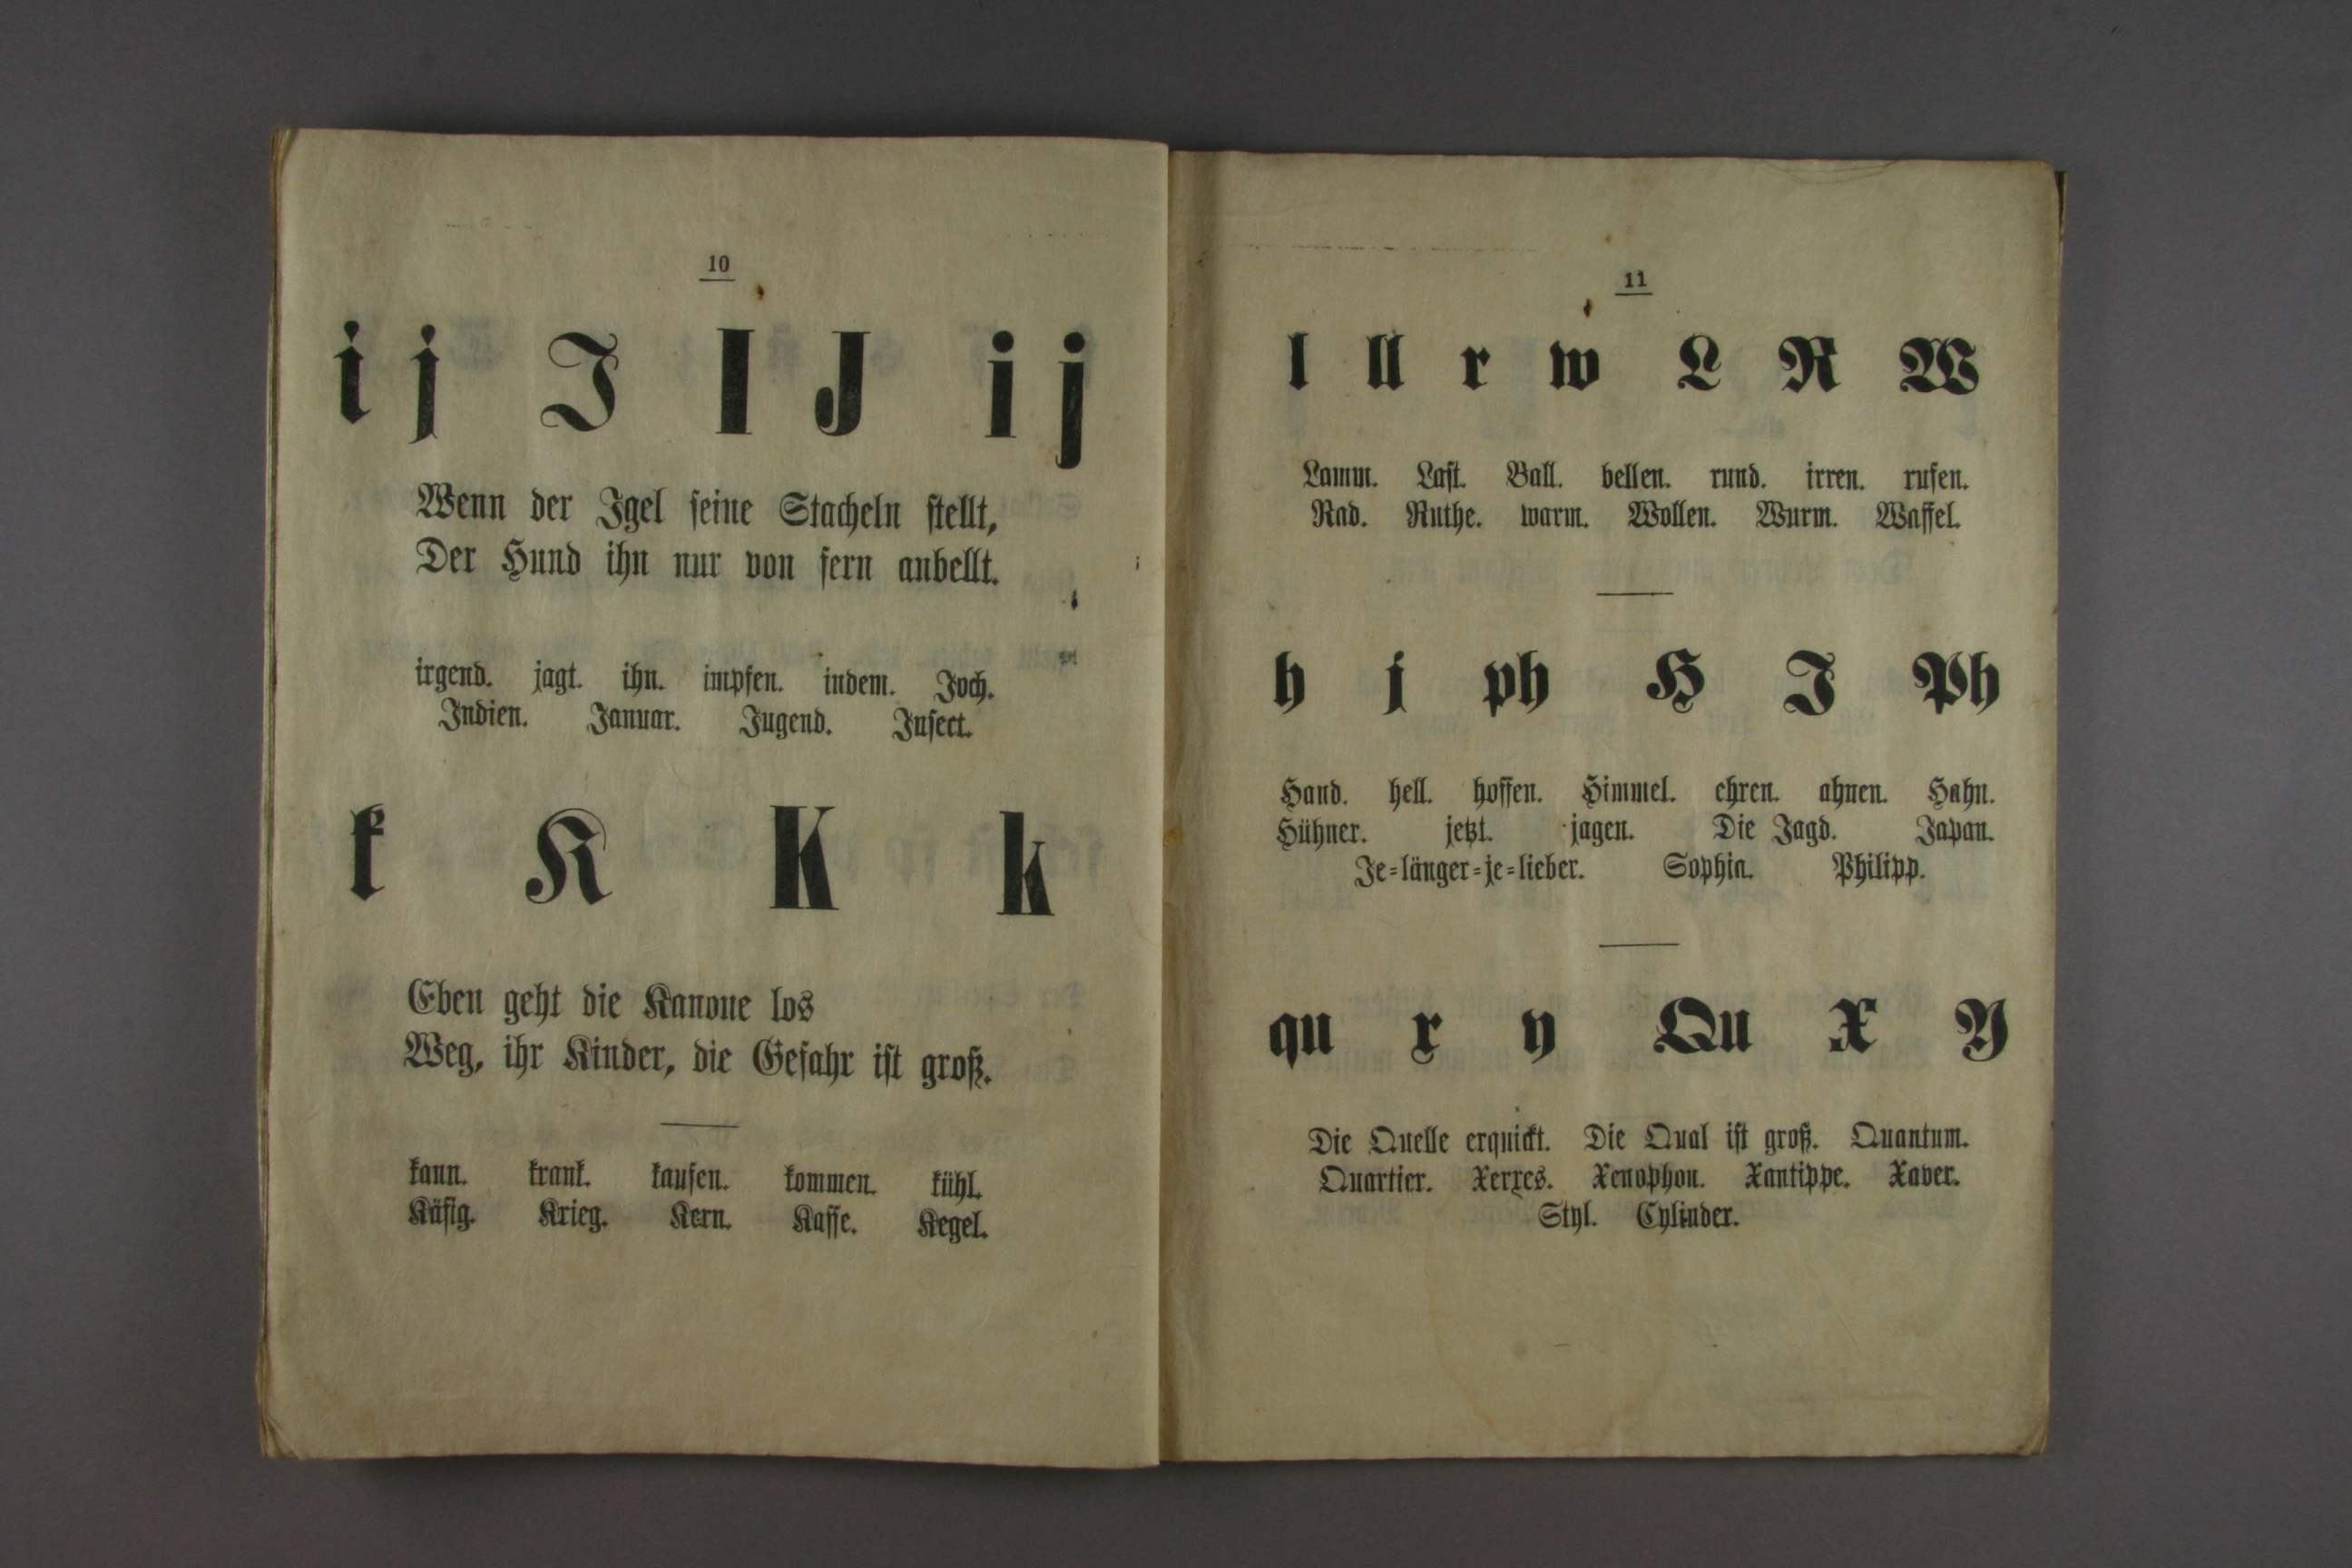 10
i j J I J i j
Wenn der Igel seine Stacheln stellt,
Der Hund ihn nur von fern anbellt.
irgend. jagt. ihn. impfen. indem. Joch.
Indien. Januar. Jugend. Insect.
k K K k
Eben geht die Kanone los
Weg, ihr Kinder, die Gefahr ist groß.
kann. krank. kaufen. kommen. kühl.
Käfig. Krieg. Kern. Kasse. Kegel.
11
l ll r w L R W
Lamm. Last. Ball. bellen. rund. irren. rufen.
Rad. Ruthe. warm. Wollen. Wurm. Waffel.
h j ph H J Ph
Hand. hell. hoffen. Himmel. ehren. ahnen. Hahn.
Hühner. jetzt. jagen. Die Jagd. Japan.
Je-länger-je-lieber. Sophia. Philipp.
qu x y Qu X Y
Die Quelle erquickt. Die Qual ist groß. Quantum.
Quartier. Xerxes. Xenophon. Xantippe. Xaver.
Styl. Cylinder.